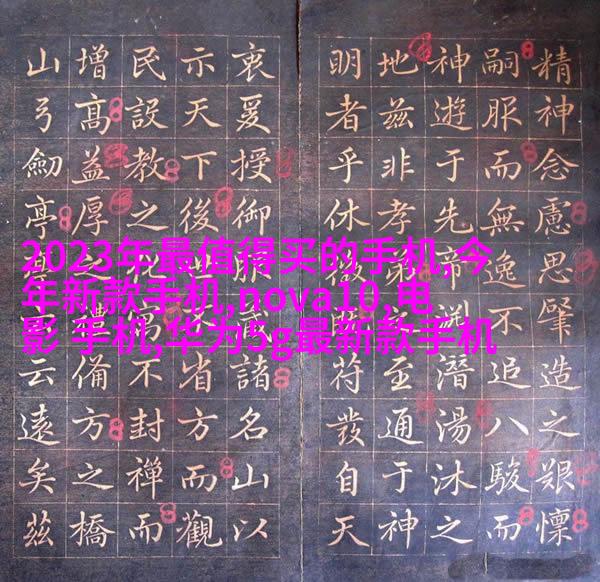 2023年最值得买的手机,今
年新款手机,nova10,电
影 手机,华为5g最新款手机
精神念慮思肇造之艱懍
嗣服而無逸不追八駿而
神遊于先帝淵潛湯沐之
地茲非孝弟至通于神
明者乎休符發自天
衷爰授御諸名山以
示天下後省方而觀
民設教之不封禪而
增高益厚備方之橋
山弓劍亭云遠矣茲